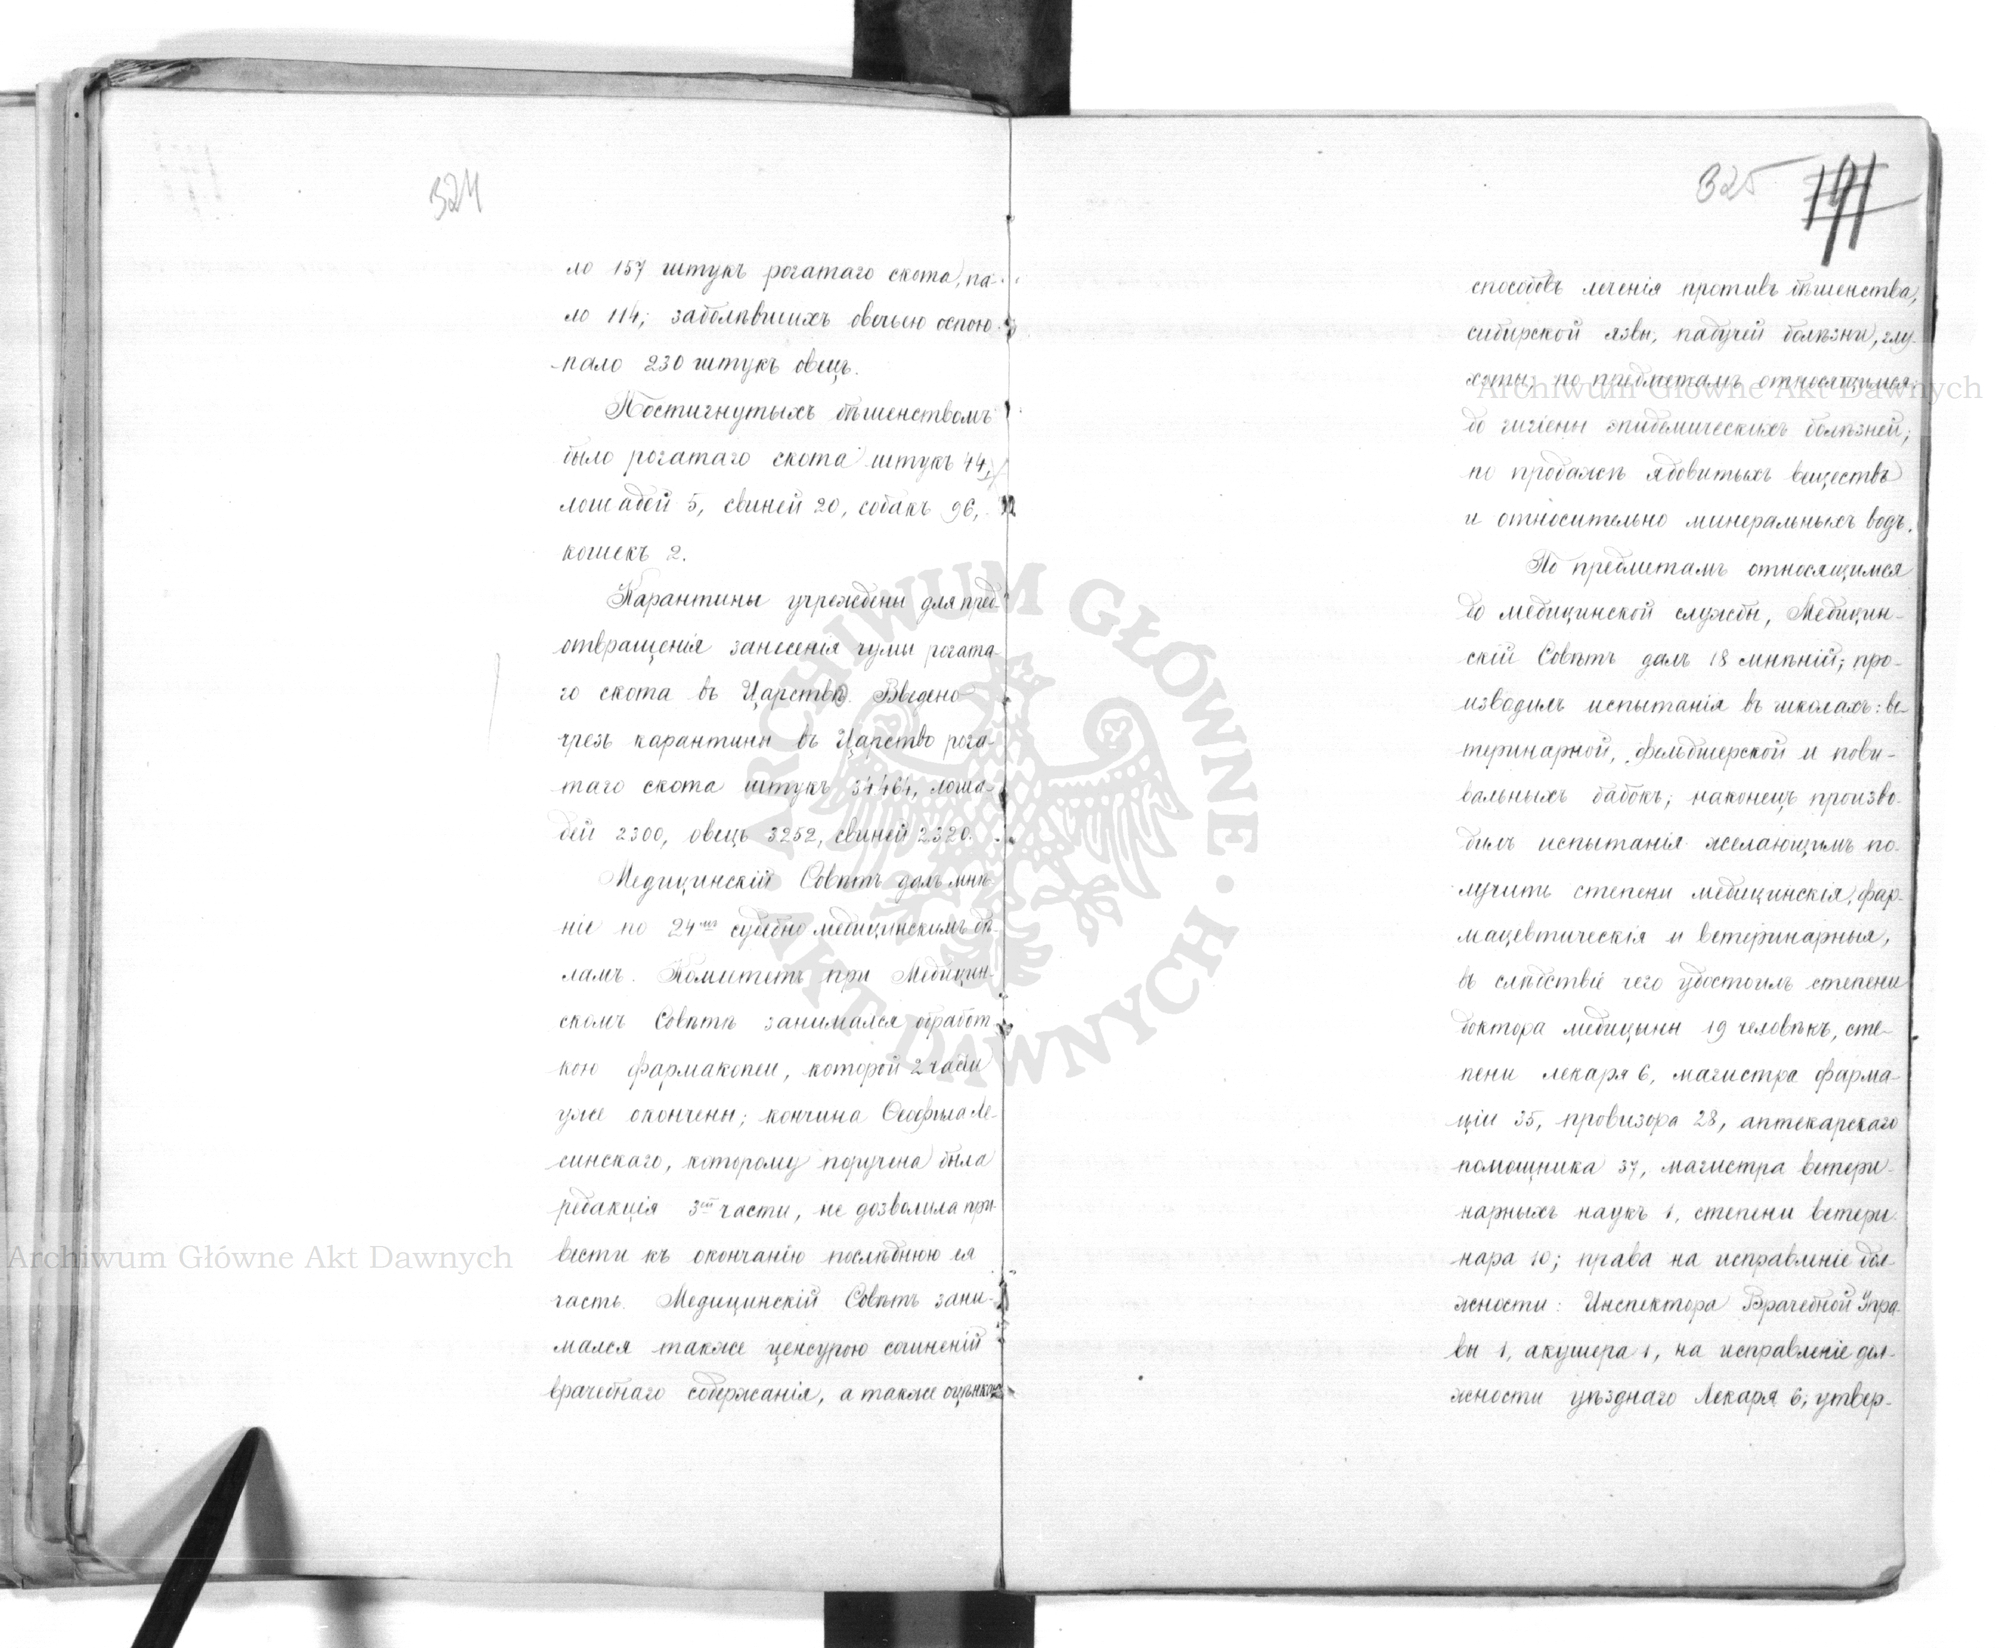 324
ло 157 штукъ рогатаго скота, па-
ло 114; заболѣвшихъ овечьею оспою
пало 230 штукъ овецъ.
Постигнутыхъ бѣшенствомъ
было рогатаго скота штукъ 44,
лошадей 5, свиней 20, собакъ 96,
кошекъ 2.
Карантины учреждены для пред-
отвращенія занесенія чумы рогата-
го скота въ Царство. Введено
чрезъ карантины въ Царство рога-
таго скота штукъ 34464, лоша-
дей 2300, овецъ 3252, свиней 2320.
Медицинскій Совѣтъ далъ мнѣ-
ніе по 24мъ судебно медицинскимъ дѣ-
ламъ. Комитетъ при Медицин-
скомъ Совѣтѣ занимался обработ-
кою фармакопеи, которой 2 части
уже окончены; кончина Ѳеофила Ле-
синскаго, которому поручена была
редакція 3ей части, не дозволила при-
вести къ окончанію послѣднюю ея
часть. Медицинскій Совѣтъ зани-
мался также цензурою сочиненій
врачебнаго содержанія, а также оцѣнкою
325 191
способовъ леченія противъ бѣшенства,
сибирской язвы, падучей болѣзни, глу-
хоты; по предметамъ относящимся
до гигіены эпидемическихъ болѣзней;
по продажѣ ядовитыхъ веществъ
и относительно минеральныхъ водъ.
По предметамъ относящимся
до медицинской службы, Медицин-
скій Совѣтъ далъ 18 мнѣній; про-
изводилъ испытанія въ школахъ: ве-
теринарной, фельдшерской и пови-
вальныхъ бабокъ; наконецъ произво-
дилъ испытанія желающимъ по-
лучить степени медицинскія, фар-
мацевтическія и ветеринарныя,
въ слѣдствіе чего удостоилъ степени
доктора медицины 19 человѣкъ, сте-
пени лекаря 6, магистра фарма-
ціи 35, провизора 28, аптекарскаго
помощника 37, магистра ветери-
нарныхъ наукъ 1, степени ветери-
нара 10; права на исправленіе дол-
жности: Инспектора Врачебной Упра-
вы 1, акушера 1, на исправленіе дол-
жности уѣзднаго Лекаря 6; утвер-
Archiwum Główne Akt Dawnych
Archiwum Główne Akt Dawnych
ARCHIWUM GŁÓWNE · AKT DAWNYCH ·